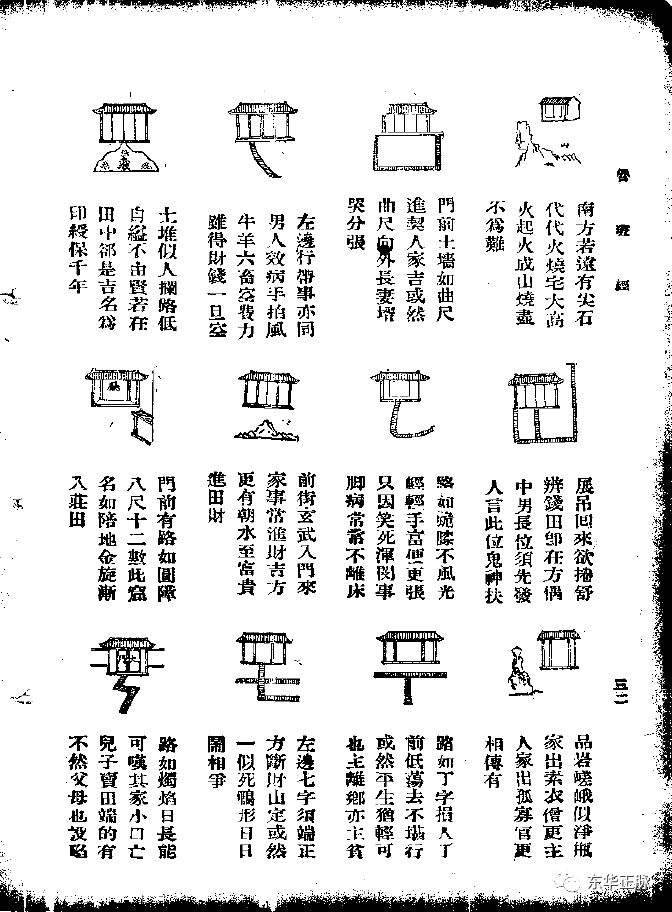 魯班經
南方若還有尖石
代代火燒宅大高
火起火成山燒盡
不為難
門前土墻如曲尺
進契人家吉或然
曲尺向外長妻壻
哭分張
左邊行帶事亦同
男人效病手拍風
牛羊六畜空費力
雖得財錢一旦空
土堆似人攔路低
自縊不由賢若在
田中卻是吉名為
印綬保千年
展吊回來欲捲舒
辨錢田卽在方偶
中男長位須先發
人言此位鬼神扶
路如跪膝不風光
輕輕乍富便更張
只因笑死渾閒事
脚病常常不離床
前街玄武入門來
家事常進財吉方
更有朝水至富貴
進田財
門前有路如圓障
八尺十二數此窟
名如陪地金旋漸
入莊田
三二
品岩嵯峨似淨瓶
家出素衣僧更主
人家出孤寡官更
相傳有
路如丁字損人丁
前低蕩去不堪行
或然平生猶輕可
也主離鄉亦主貧
左邊七字須端正
方斷財山定或然
一似死鴨形日日
鬧相爭
路如燭焰日長能
可嘆其家小口亡
兒子賣田端的有
不然父母也
东华正脉